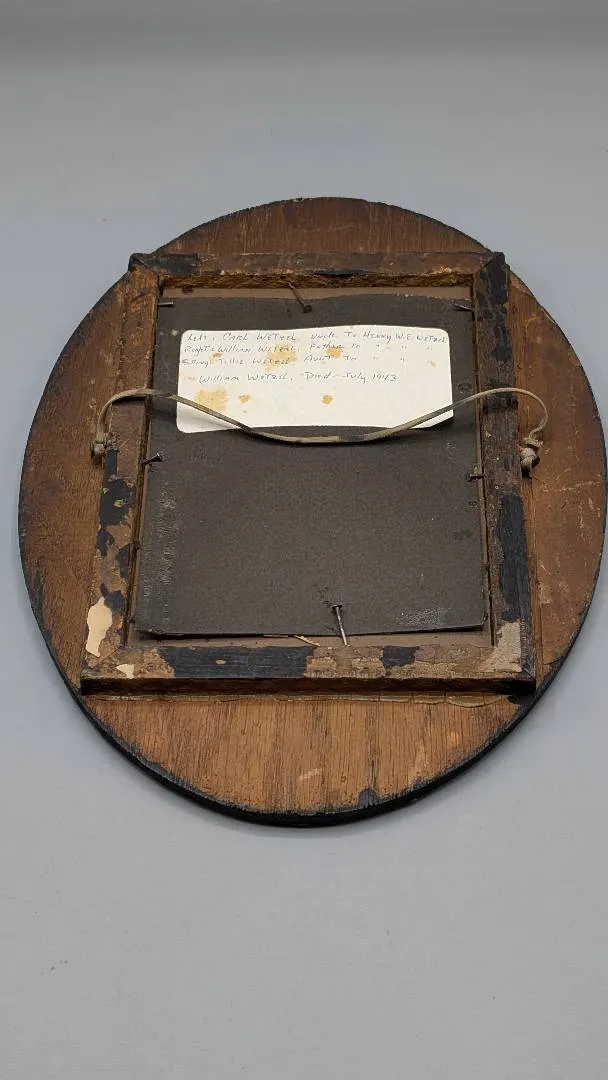 Left: Carl Wetzel, Uncle To Henry W.E. Wetzel
Right: William Wetzel Father To " " "
Sitting: Tillie Wetzel Aunt To " " "
William Wetzel, Died - July 1943